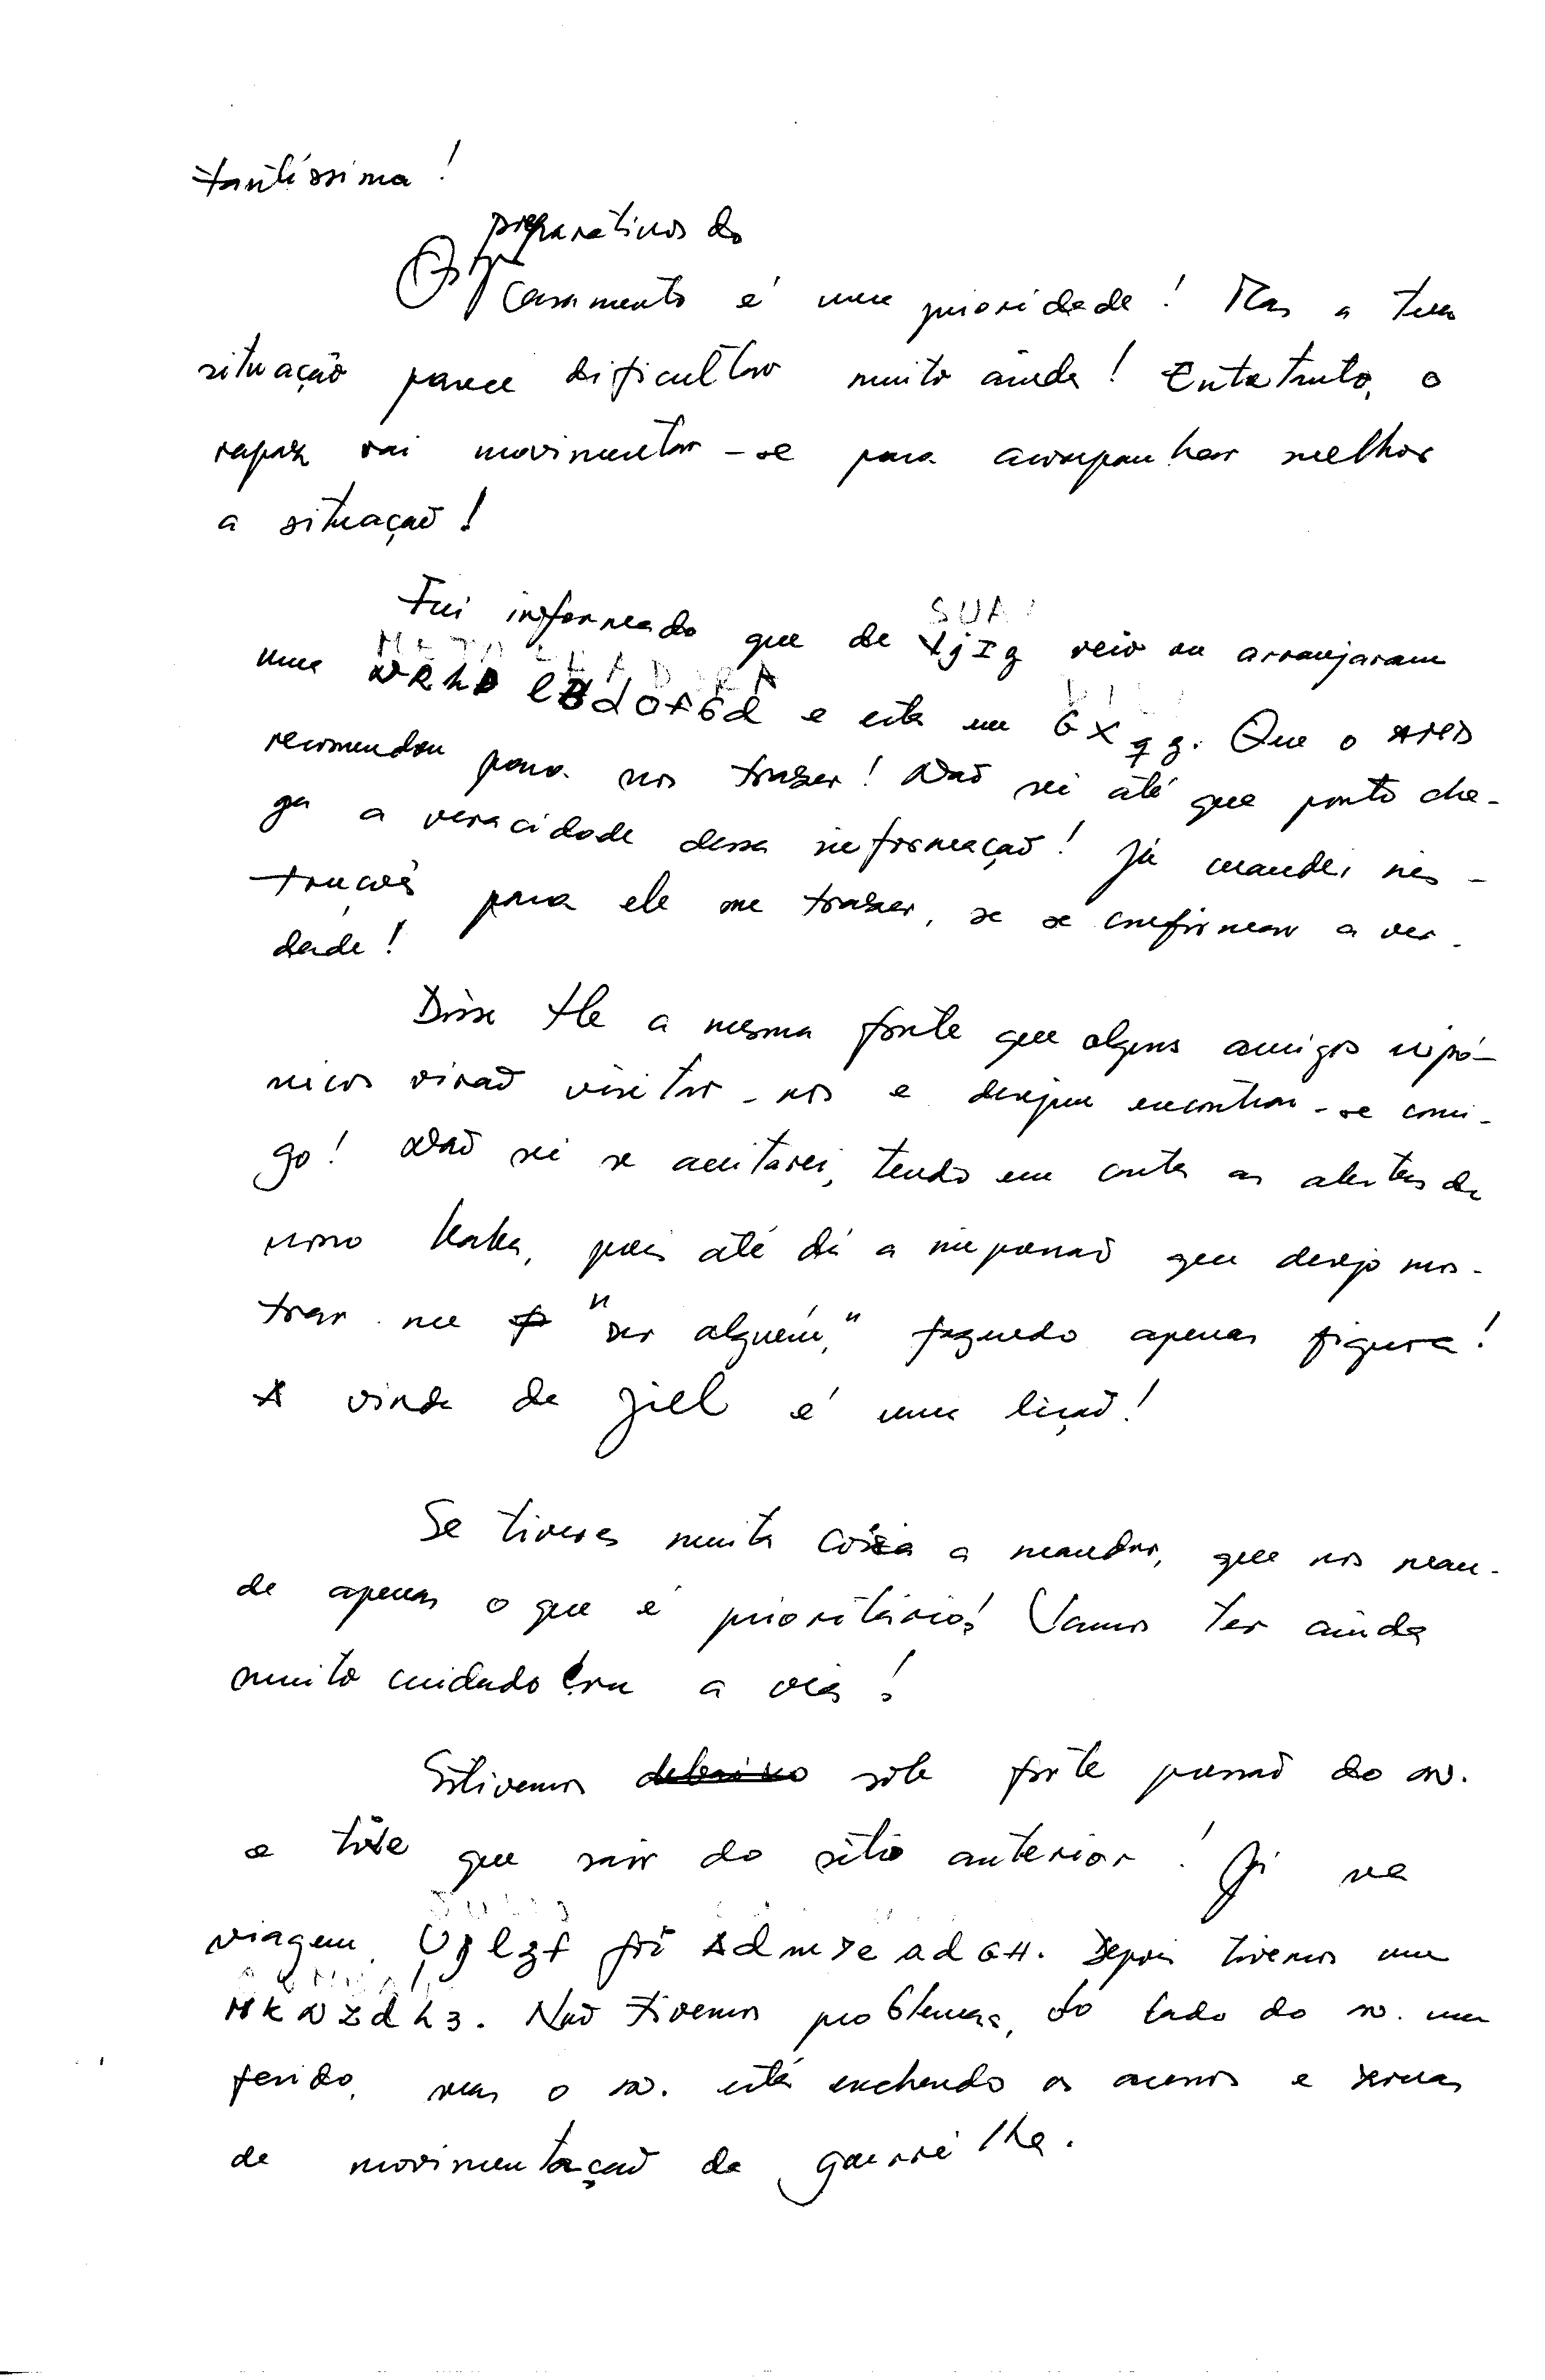 tantíssima!
preparativos do
Os casamento é uma prioridade! Mas a tua
situação parece dificultar muito ainda! Entatanto, o
rapaz vai movimentar-se para acompanhar melhor
a situação!
SUA
Fui informado que de XjIg veio ou arranjaram
METRALHADORA
uma e está em GXqg. Que o
recomendou para nos trazer! Não sei até que ponto che-
ga a veracidade dessa informação! Já mandei ins-
truções para ele me trazer, se se confirmar a ver-
dade!
Disse -lhe a mesma fonte que alguns amigos nipó-
nicos virão visitar-nos e desejam encontrar-se comi-
go! Não sei se aceitarei, tendo em conta as alertas do
nosso kaka, pois até dá a impressão que desejo mos-
trar-me "ser alguém," fazendo apenas figura!
A vinda de Jiel é uma lição!
Se tiveres muita coisa a mandar, que nos man-
de apenas o que é prioritário! Vamos ter ainda
muito cuidado com a via!
Estivemos debaixo sob forte pressão do in.
e tive que sair do sítio anterior! Já na
viagem, foi Depois tivemos uma
Não tivemos problemas, do lado do in. um
ferido, mas o in. está enchendo os acessos e zonas
de movimentação da guerrilha.